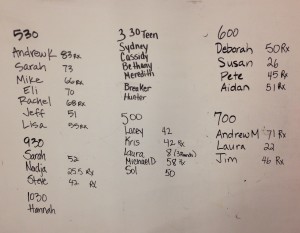 530
Andrew K 83 Rx
Sarah 73
Mike 66 Rx
Eli 70
Rachel 68 Rx
Jeff 51
Lisa 55 Rx
930
Sarah 52
Nadja 255 Rx
Steve 42 Rx
1030
Hannah
330 Teen
Sydney
Cassidy
Bethany
Meredith
Breaker
Hunter
500
Lacey 42
Kris 42 Rx
Laura 8
Michael D 58 Rx
Sol 50
600
Deborah 50 Rx
Susan 26
Pete 45 Rx
Aidan 51 Rx
700
Andrew M 71 Rx
Laura 22
Jim 46 Rx